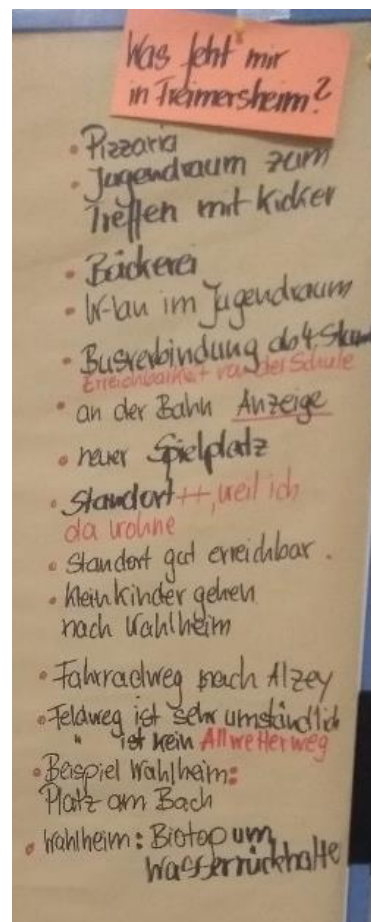 Was fehlt mir
in Freimersheim?
• Pizzaria
• Jugendraum zum
Treffen mit Kicker
• Bäckerei
• W-lan im Jugendraum
• Busverbindung ab 4.
Erreichbarkeit von der Schule
• an der Bahn Anzeige
• neuer Spielplatz
• Standort ++, weil ich
da wohne
• Standort gut erreichbar.
• Kleinkinder gehen
nach Wahlheim
• Fahrradweg nach Alzey
• Feldweg ist sehr umständlich
" ist kein Allwetterweg
• Beispiel Wahlheim:
Platz am Bach
• Wahlheim: Biotop um
Wasserrückhalte